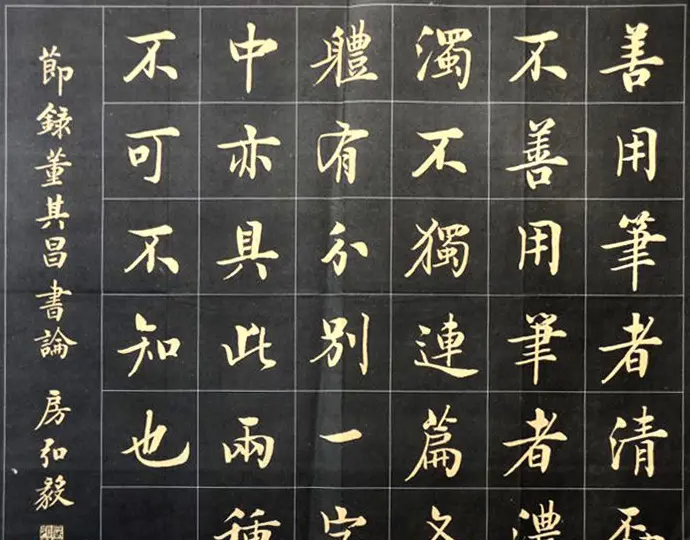 善用筆者清
不善用筆者濃
濁不獨連篇
體有分別一字
中亦具此兩種
不可不知也
節錄董其昌書論 房弘毅